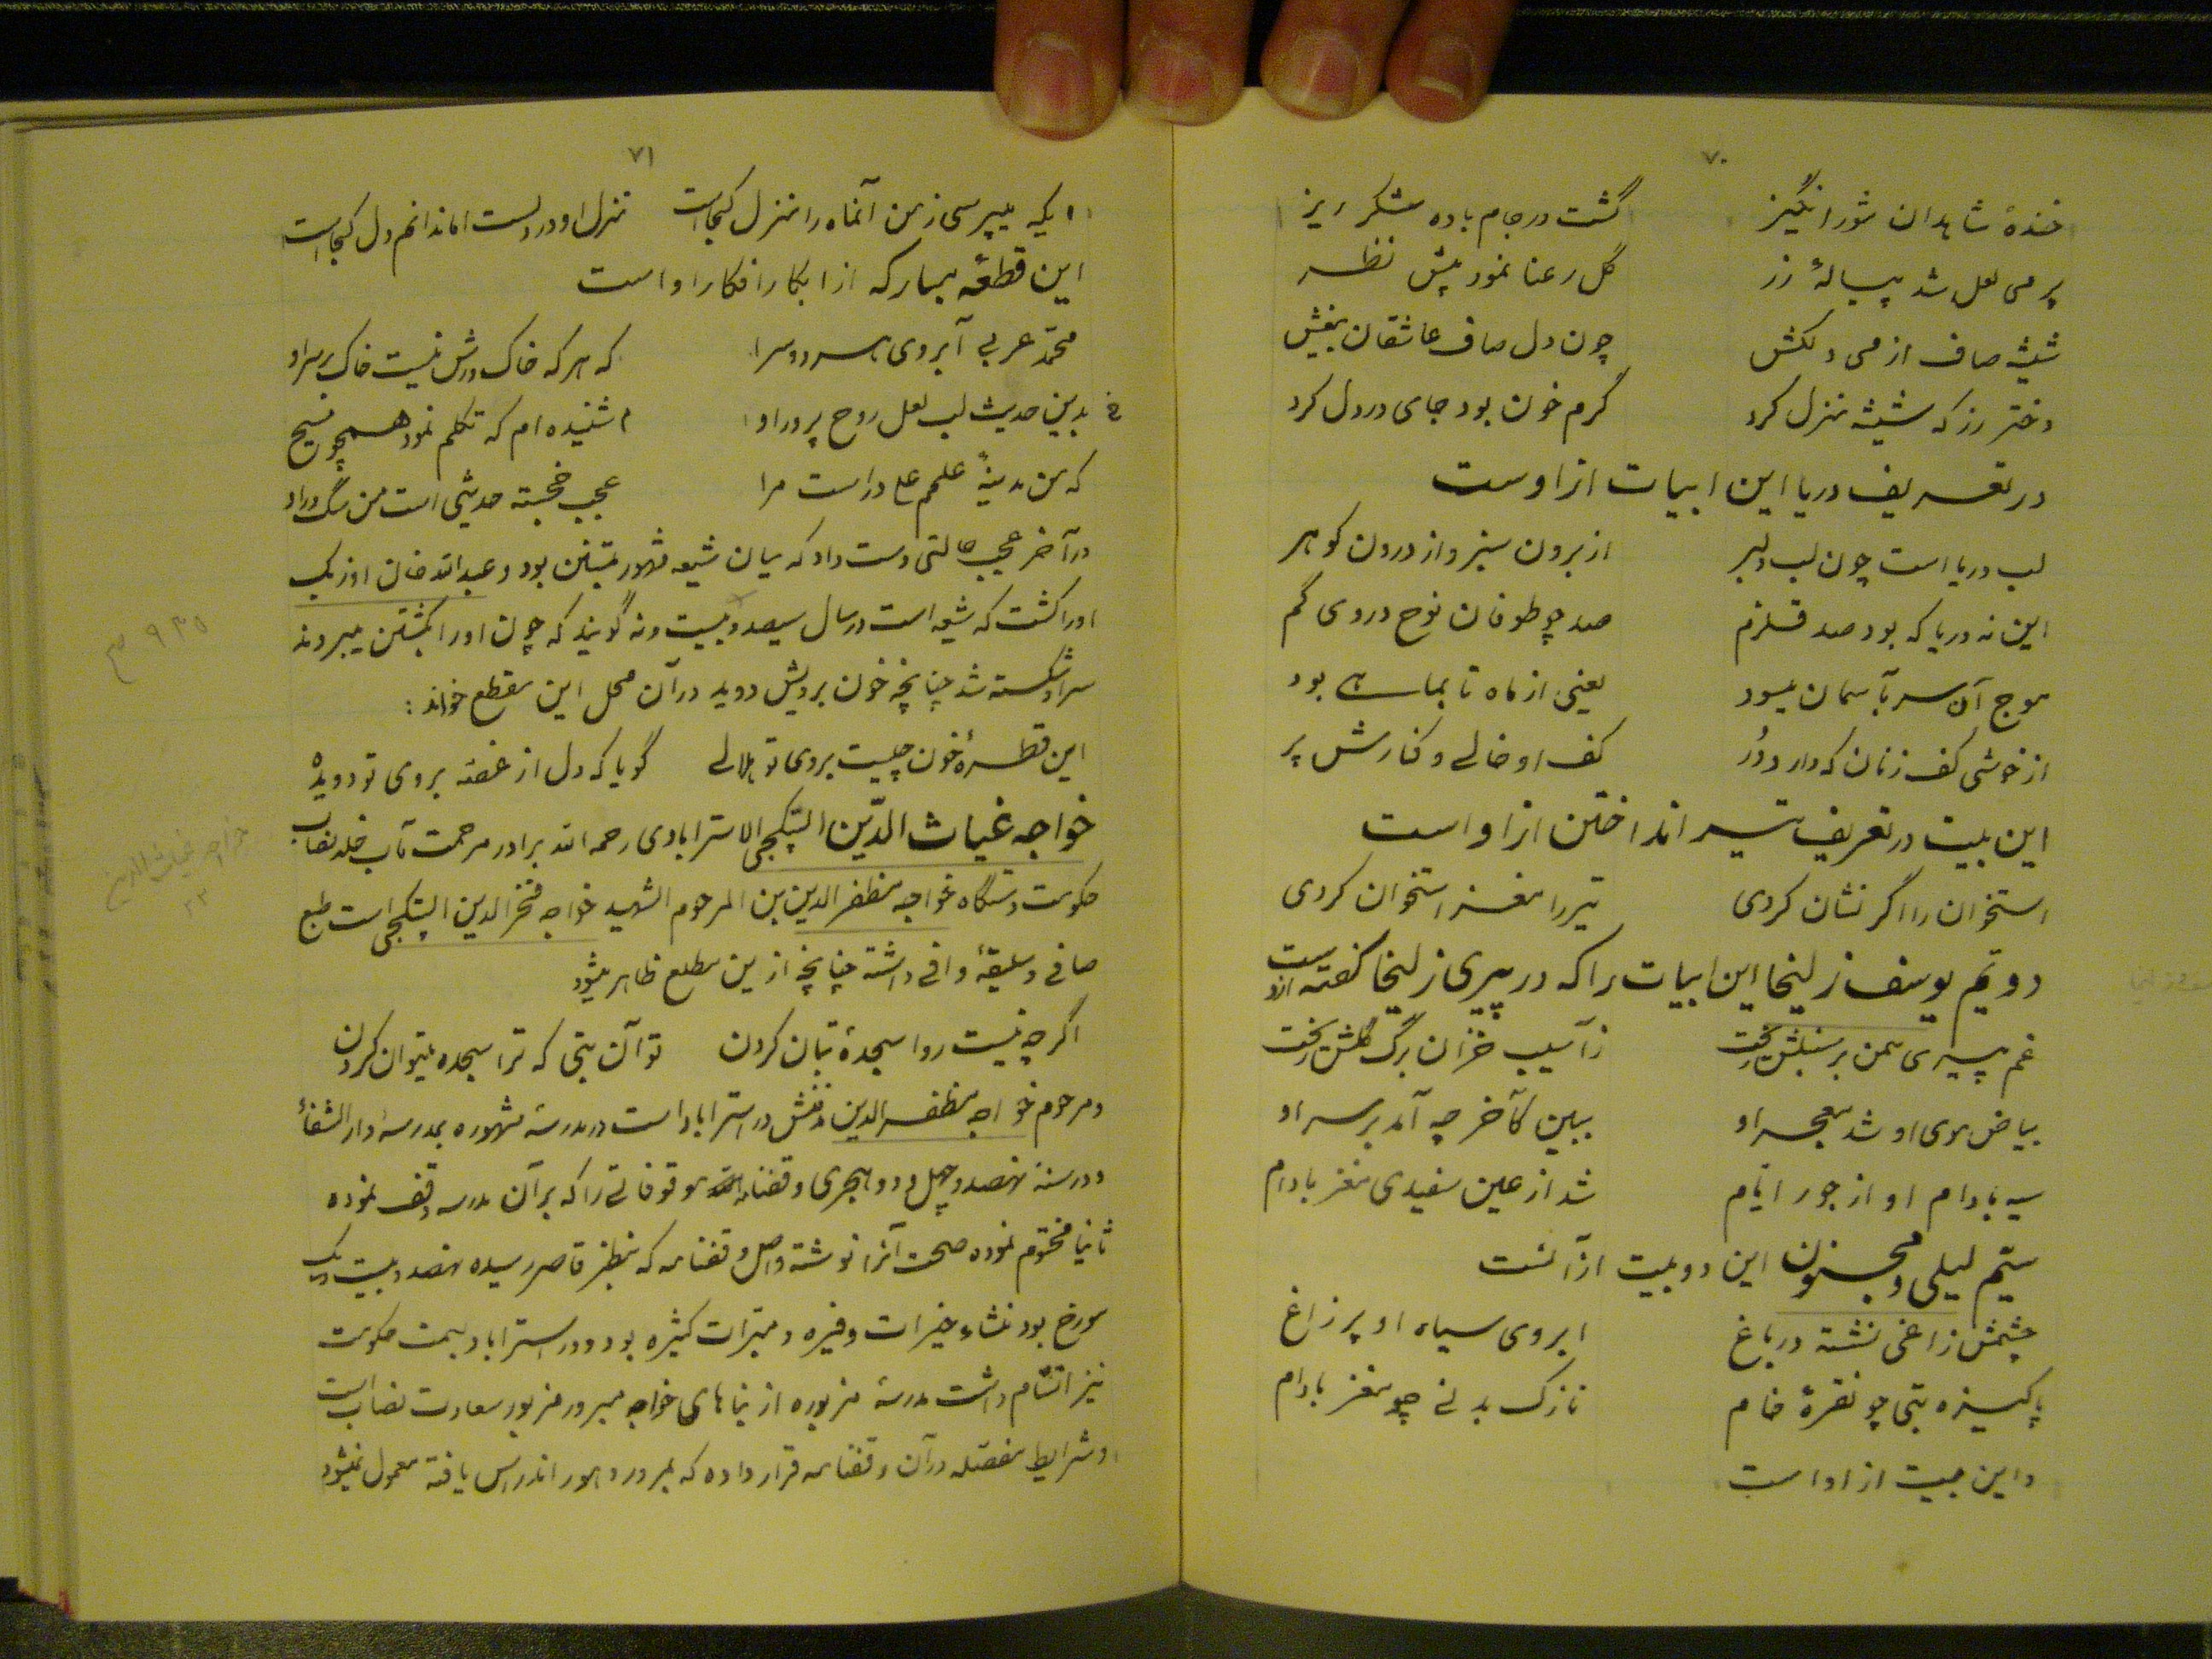 ۷۰
خندهٔ شاهدان شورانگیز گشت در جام باده شکر ریز
پر می لعل شد پیالهٔ زر گل رعنا نمود پیش نظر
شیشه صاف از می دلکش چون دل صاف عاشقان بیغش
دختر رز که شیشه منزل کرد گرم خون بود جای در دل کرد
در تعریف دریا این ابیات از اوست
لب دریا است چون لب دلبر از برون سبز و از درون گوهر
این نه دریا که بود صد قلزم صد چو طوفان نوح در وی گم
موج آن سر بآسمان میسود یعنی از ماه تا بماهی بود
از خوشی کف زنان که دارد دُر کف او خالی و کنارش پر
این بیت در تعریف تیر انداختن از او است
استخوان را اگر نشان کردی تیر را مغز استخوان کردی
دویّم یوسف زلیخا این ابیات را که در پیری زلیخا گفته ازوست
غم پیری سمن بر سنبلش ریخت ز آسیب خزان برگ گلش ریخت
بیاض موی او شد معجر او ببین کآخر چه آمد بر سر او
سیه بادام او از جور ایّام شد از عین سفیدی مغز بادام
سیّم لیلی و مجنون این دو بیت از آنست
چشمش زاغی نشسته در باغ ابروی سیاه او پر زاغ
پاکیزه تنی چو نقرهٔ خام نازک بدنی چو مغز بادام
و این بیت از او است
۷۱
ایکه میپرسی ز من آنماه را منزل کجاست منزل او در دلست اما ندانم دل کجاست
این قطعهٔ مبارکه از ابکار افکار او است
محمّد عربی آبروی هر دو سرا که هر که خاک درش نیست خاک بر سر او
شنیده‌ام که تکلم نمود همچو مسیح بدین حدیث لب لعل روح پرور او
که من مدینهٔ علمم علی دراست مرا عجب خجسته حدیثی است من سگ در او
در آخر عجب حالتی دست داد که میان شیعه مشهور بتسنن بود و عبدالله خان اوزبک
اورا کشت که شیعه است در سال سیصد و بیست و نه گویند که چون اورا بکشتن میبردند
سر او شکسته شد چنانچه خون بر رویش دوید در آن محل این مقطع خواند :
این قطرهٔ خون چیست بروی تو هلالی گویا که دل از غصه بروی تو دویده
خواجه غیاث الدّین البتکچی الاسترابادی رحمه الله برادر مرحمت مآب خلد نصاب
حکومت دستگاه خواجه مظفر الدین بن المرحوم الشهید خواجه فخر الدین البتکچی است طبع
صافی و سلیقهٔ وافی داشته چنانچه ازین مطلع ظاهر میشود
اگر چه نیست روا سجدهٔ بتان کردن تو آن بتی که ترا سجده میتوان کردن
و مرحوم خواجه مظفر الدین مدفنش در استراباد است در مدرسهٔ مشهوره بمدرسهٔ دار الشفأ
و در سنهٔ نهصد و چهل و دو هجری وقفنامه موقوفاتی را که بر آن مدرسه وقف نموده
ثانیا مختوم نموده صحت آنرا نوشته و اصل وقفنامه که بنظر قاصر رسیده نهصد و بیست و یک
مورخ بود منشاء خیرات وفیره و مبرّات کثیره بود و در استراباد بسمت حکومت
نیز اتسّام داشت مدرسهٔ مزبوره از بناهای خواجه مبرور مزبور سعادت نصاب است
و شرایط مفصّله در آن وقفنامه قرار داده که بمرور دهور اندراس یافته معمول نمیشود
۹۳۵
خواجه غیاث الدین